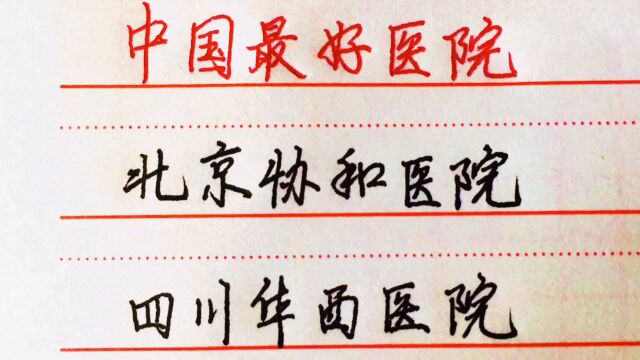 中国最好医院
北京协和医院
四川华西医院